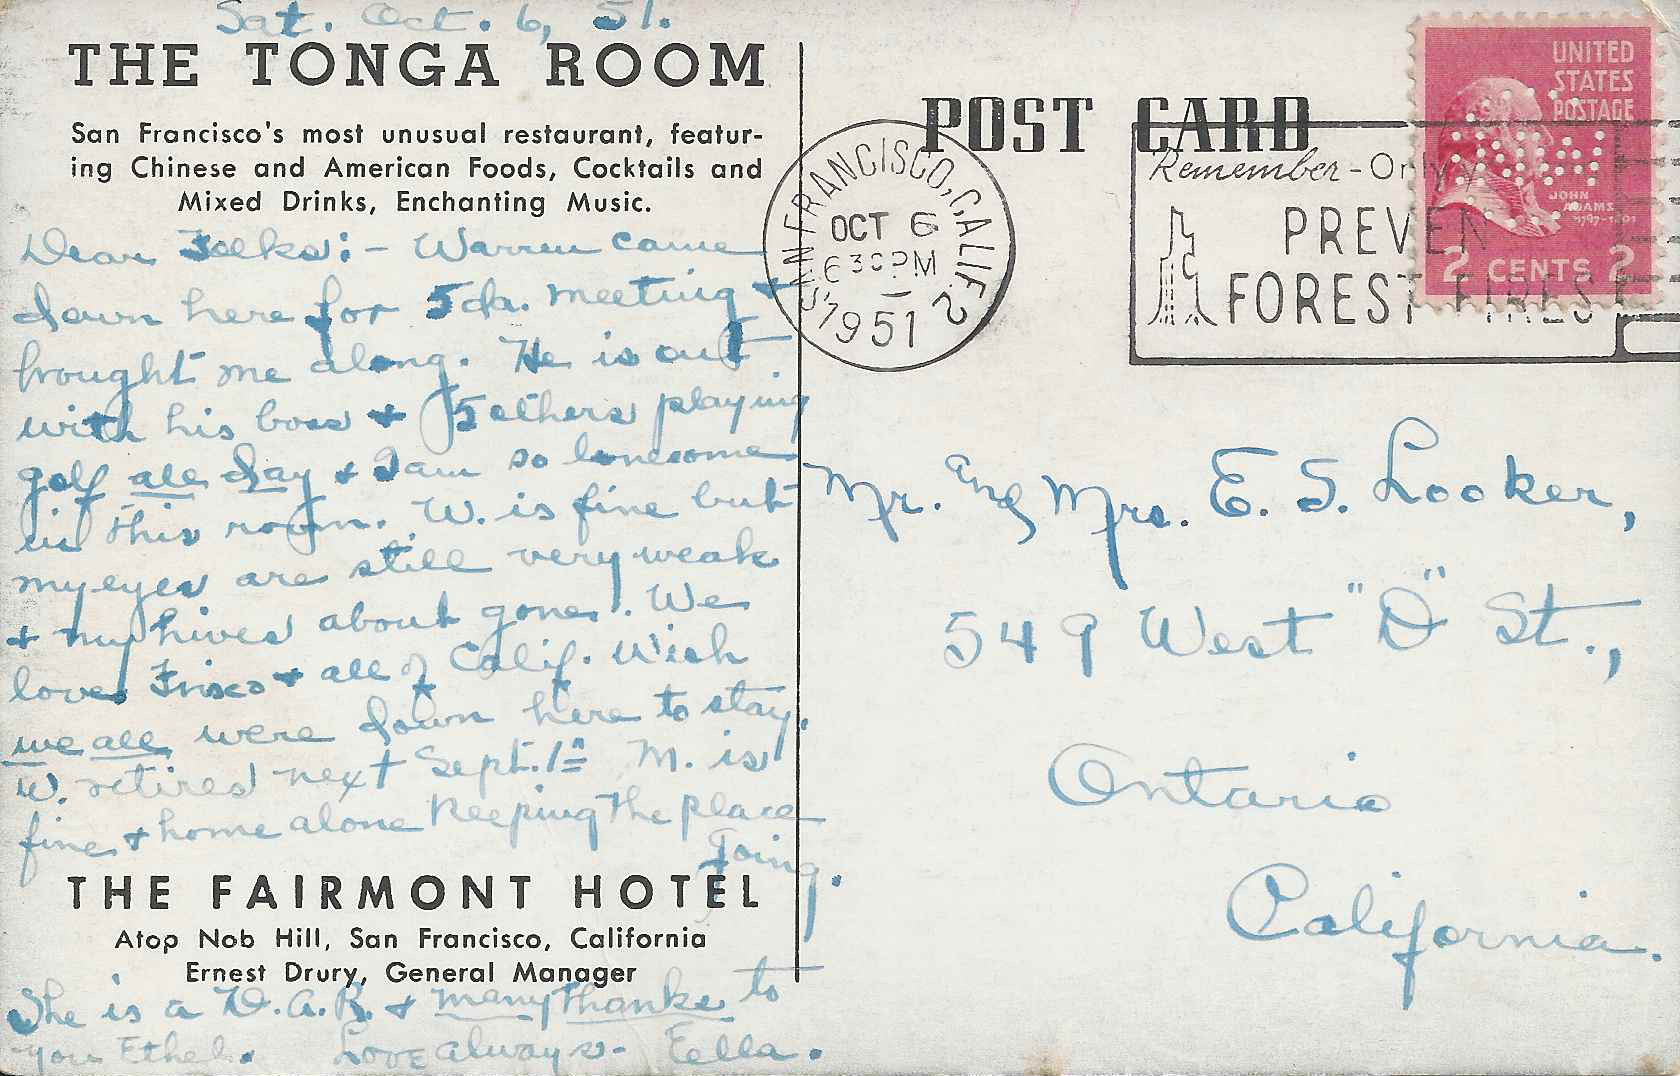 Sat. Oct. 6, 51.
THE TONGA ROOM
San Francisco's most unusual restaurant, featur-
ing Chinese and American Foods, Cocktails and
Mixed Drinks, Enchanting Music.
Dear Folks:- Warren came
down here for 5 da. meeting +
brought me along. He is out
with his boss + 5 others playing
golf all day + I am so lonesome
in this room. W. is fine but
my eyes are still very weak
+ my hives about gone. We
love Frisco + all of Calif. Wish
we all were down here to stay.
W. retires next Sept. 1 M. is
fine + home alone keeping the place
going.
THE FAIRMONT HOTEL
Atop Nob Hill, San Francisco, California
Ernest Drury, General Manager
She is a D.A.R. + many thanks to
you Ethel. Love always - Eella.
POST CARD
SAN FRANCISCO, CALIF. 2
OCT 6
630 PM
1951
Remember - Only
PREVEN
FOREST FIRES
UNITED
STATES
POSTAGE
JOHN
ADAMS
1797-1801
2 CENTS 2
Mr. and Mrs. E. S. Looker,
549 West "D" St.,
Ontario
California.